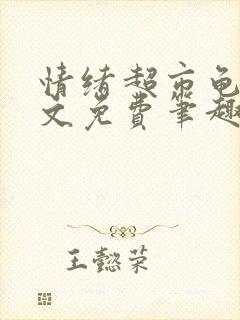 情绪超市龟
文免费笔趣
王懿荣